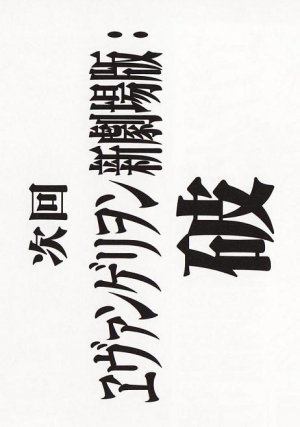 次回
ヱヴァンゲリヲン新劇場版:
破